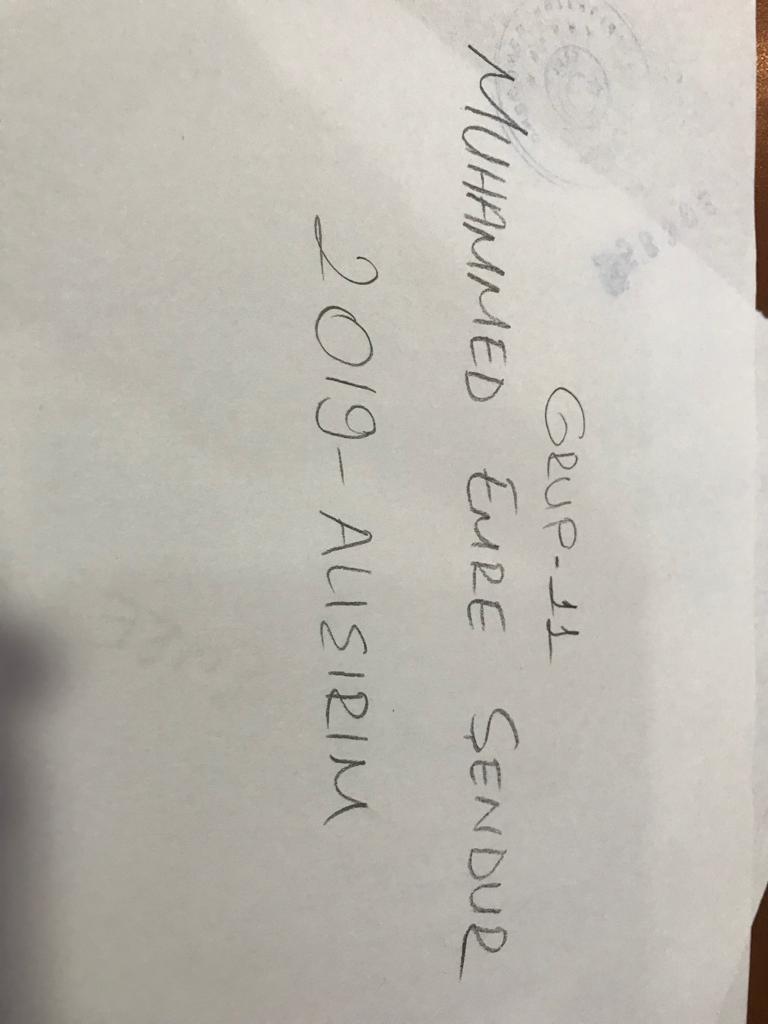 GRUP-11
MUHAMMED EMRE ŞENDUR
2019-ALIŞIRIM